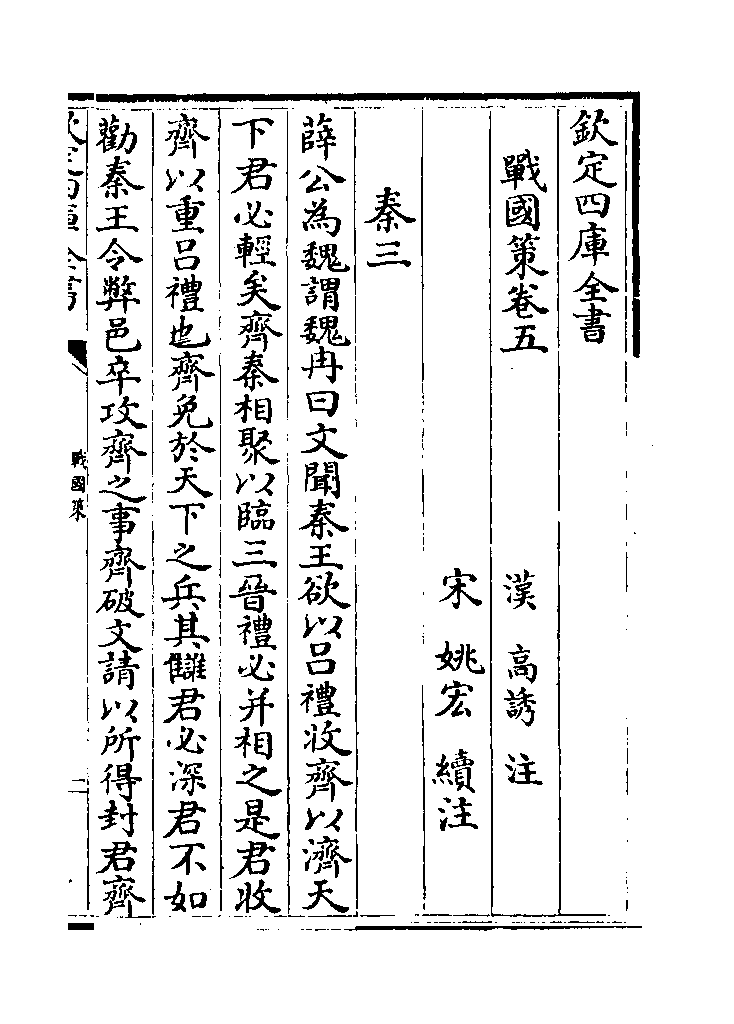 欽定四庫全書
戰國策卷五
漢 高誘 注
宋 姚宏 續注
秦三
薛公為魏謂魏冉曰文聞秦王欲以呂禮收齊以濟天
下君必輕矣齊秦相聚以臨三晉禮必并相之是君收
齊以重呂禮也齊免於天下之兵其讎君必深君不如
勸秦王令弊邑卒攻齊之事齊破文請以所得封君齊
戰國策